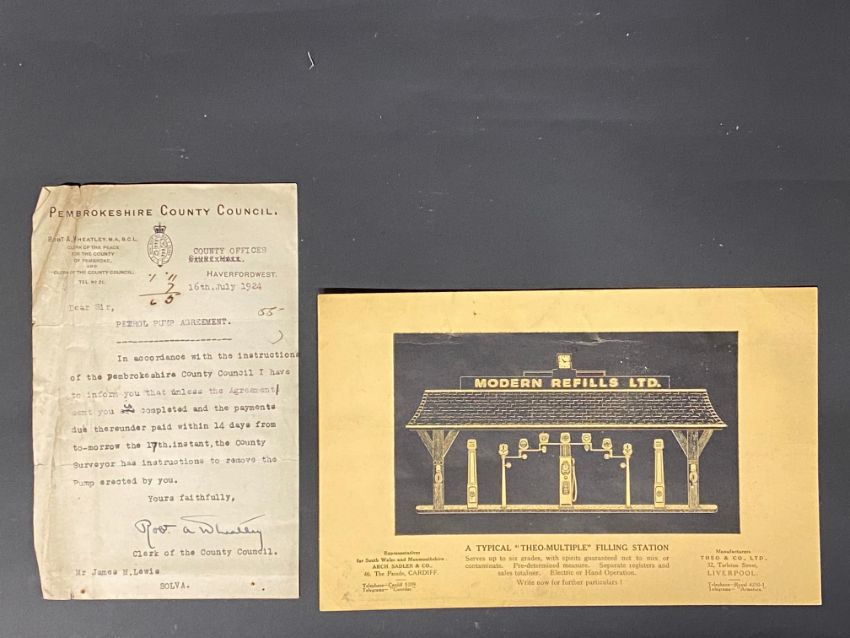 PEMBROKESHIRE COUNTY COUNCIL.
ROBT A. WHEATLEY, M.A., B.C.L.
CLERK OF THE PEACE
FOR THE COUNTY
OF PEMBROKE,
AND
CLERK OF THE COUNTY COUNCIL.
TEL. Nº 21.
COUNTY OFFICES
HAVERFORDWEST.
16th. July 1924
Dear Sir,
55-
PETROL PUMP AGREEMENT.
In accordance with the instructions
of the Pembrokeshire County Council I have
to inform you that unless the Agreement
sent you is completed and the payments
due thereunder paid within 14 days from
to-morrow the 17th.instant, the County
Surveyor has instructions to remove the
Pump erected by you.
Yours faithfully,
Robt A Wheatley
Clerk of the County Council.
Mr James N.Lewis
SOLVA.
MODERN REFILLS LTD.
Representatives
for South Wales and Monmouthshire:
ARCH. SADLER & CO.,
46, The Parade, CARDIFF.
A TYPICAL "THEO-MULTIPLE" FILLING STATION
Serves up to six grades, with spirits guaranteed not to mix or
contaminate. Pre-determined measure. Separate registers and
sales totaliser. Electric or Hand Operation.
Write now for further particulars!
Manufacturers
THEO & CO., LTD.
LIVERPOOL.